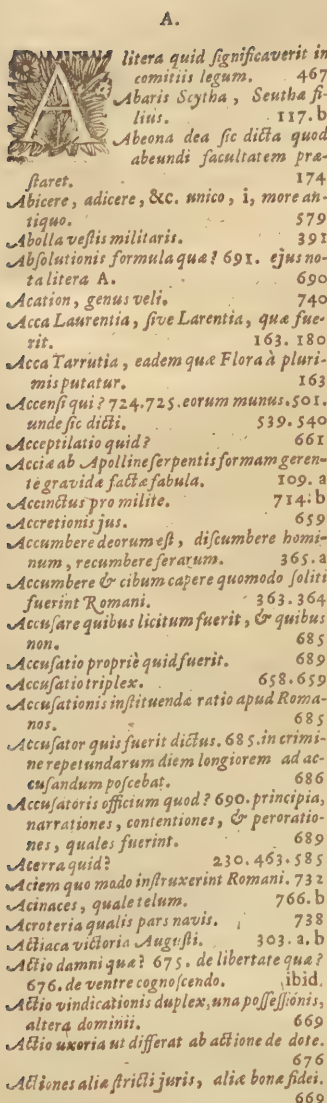 A.
A litera quid ſignificaverit in
comitiis legum. 467
Abaris Scytha, Seuthæ fi-
lius. 117.b
Abeona dea ſic dicta quod
abeundi facultatem præ-
ſtaret. 174
Abicere, adicere, &c. unico, i, more an-
tiquo. 579
Abolla veſtis militaris. 391
Abſolutionis formula quæ? 691. ejus no-
ta litera A. 690
Acation, genus veli. 740
Acca Laurentia, ſive Larentia, quæ fue-
rit. 163. 180
Acca Tarrutia, eadem quæ Flora à pluri-
mis putatur. 163
Accenſi qui? 724.725. eorum munus. 501.
unde ſic dicti. 539.540
Acceptilatio quid? 661
Acciæ ab Apolline ſerpentis formam geren-
te gravidæ factæ fabula. 109. a
Accinctus pro milite. 714.b
Accretionis jus. 659
Accumbere deorum eſt, diſcumbere homi-
num, recumbere ferarum. 365.a
Accumbere & cibum capere quomodo ſoliti
fuerint Romani. 363.364
Accuſare quibus licitum fuerit, & quibus
non. 685
Accuſatio propriè quid fuerit. 689
Accuſatio triplex. 658.659
Accuſationis inſtituendæ ratio apud Roma-
nos. 685
Accuſator quis fuerit dictus. 685. in crimi-
ne repetundarum diem longiorem ad ac-
cuſandum poſcebat. 686
Accuſatoris officium quod? 690. principia,
narrationes, contentiones, & peroratio-
nes, quales fuerint. 689
Acerra quid? 230.463.585
Aciem quo modo inſtruxerint Romani. 732
Acinaces, quale telum. 766.b
Acroteria qualis pars navis. 738
Actiaca victoria Auguſti. 303. a. b
Actio damni quæ? 675. de libertate quæ?
676. de ventre cognoſcendo. ibid.
Actio vindicationis duplex, una poſſeſſionis,
altera dominii. 669
Actio uxoria ut differat ab actione de dote.
676
Actiones aliæ ſtricti juris, aliæ bonæ fidei.
669